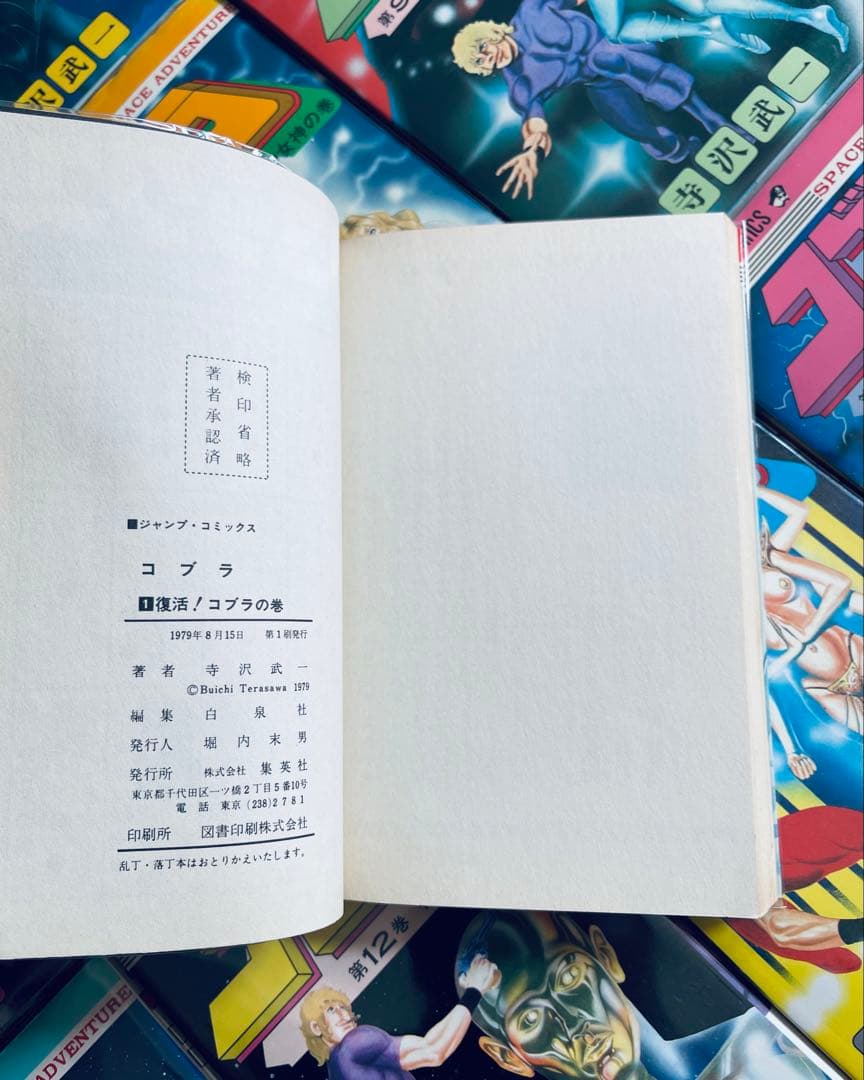 沢武一
SPACE ADVENTURE
女神の巻
第9
寺沢武一
SPACE
検印省略
著者承認済
■ジャンプ・コミックス
コブラ
1復活!コブラの巻
1979年8月15日 第1刷発行
著者 寺沢武一
©Buichi Terasawa 1979
編集 白泉社
発行人 堀内末男
発行所 株式会社 集英社
東京都千代田区一ツ橋2丁目5番10号
電話 東京(238)2781
印刷所 図書印刷株式会社
乱丁・落丁本はおとりかえいたします。
第12巻
ADVENTURE